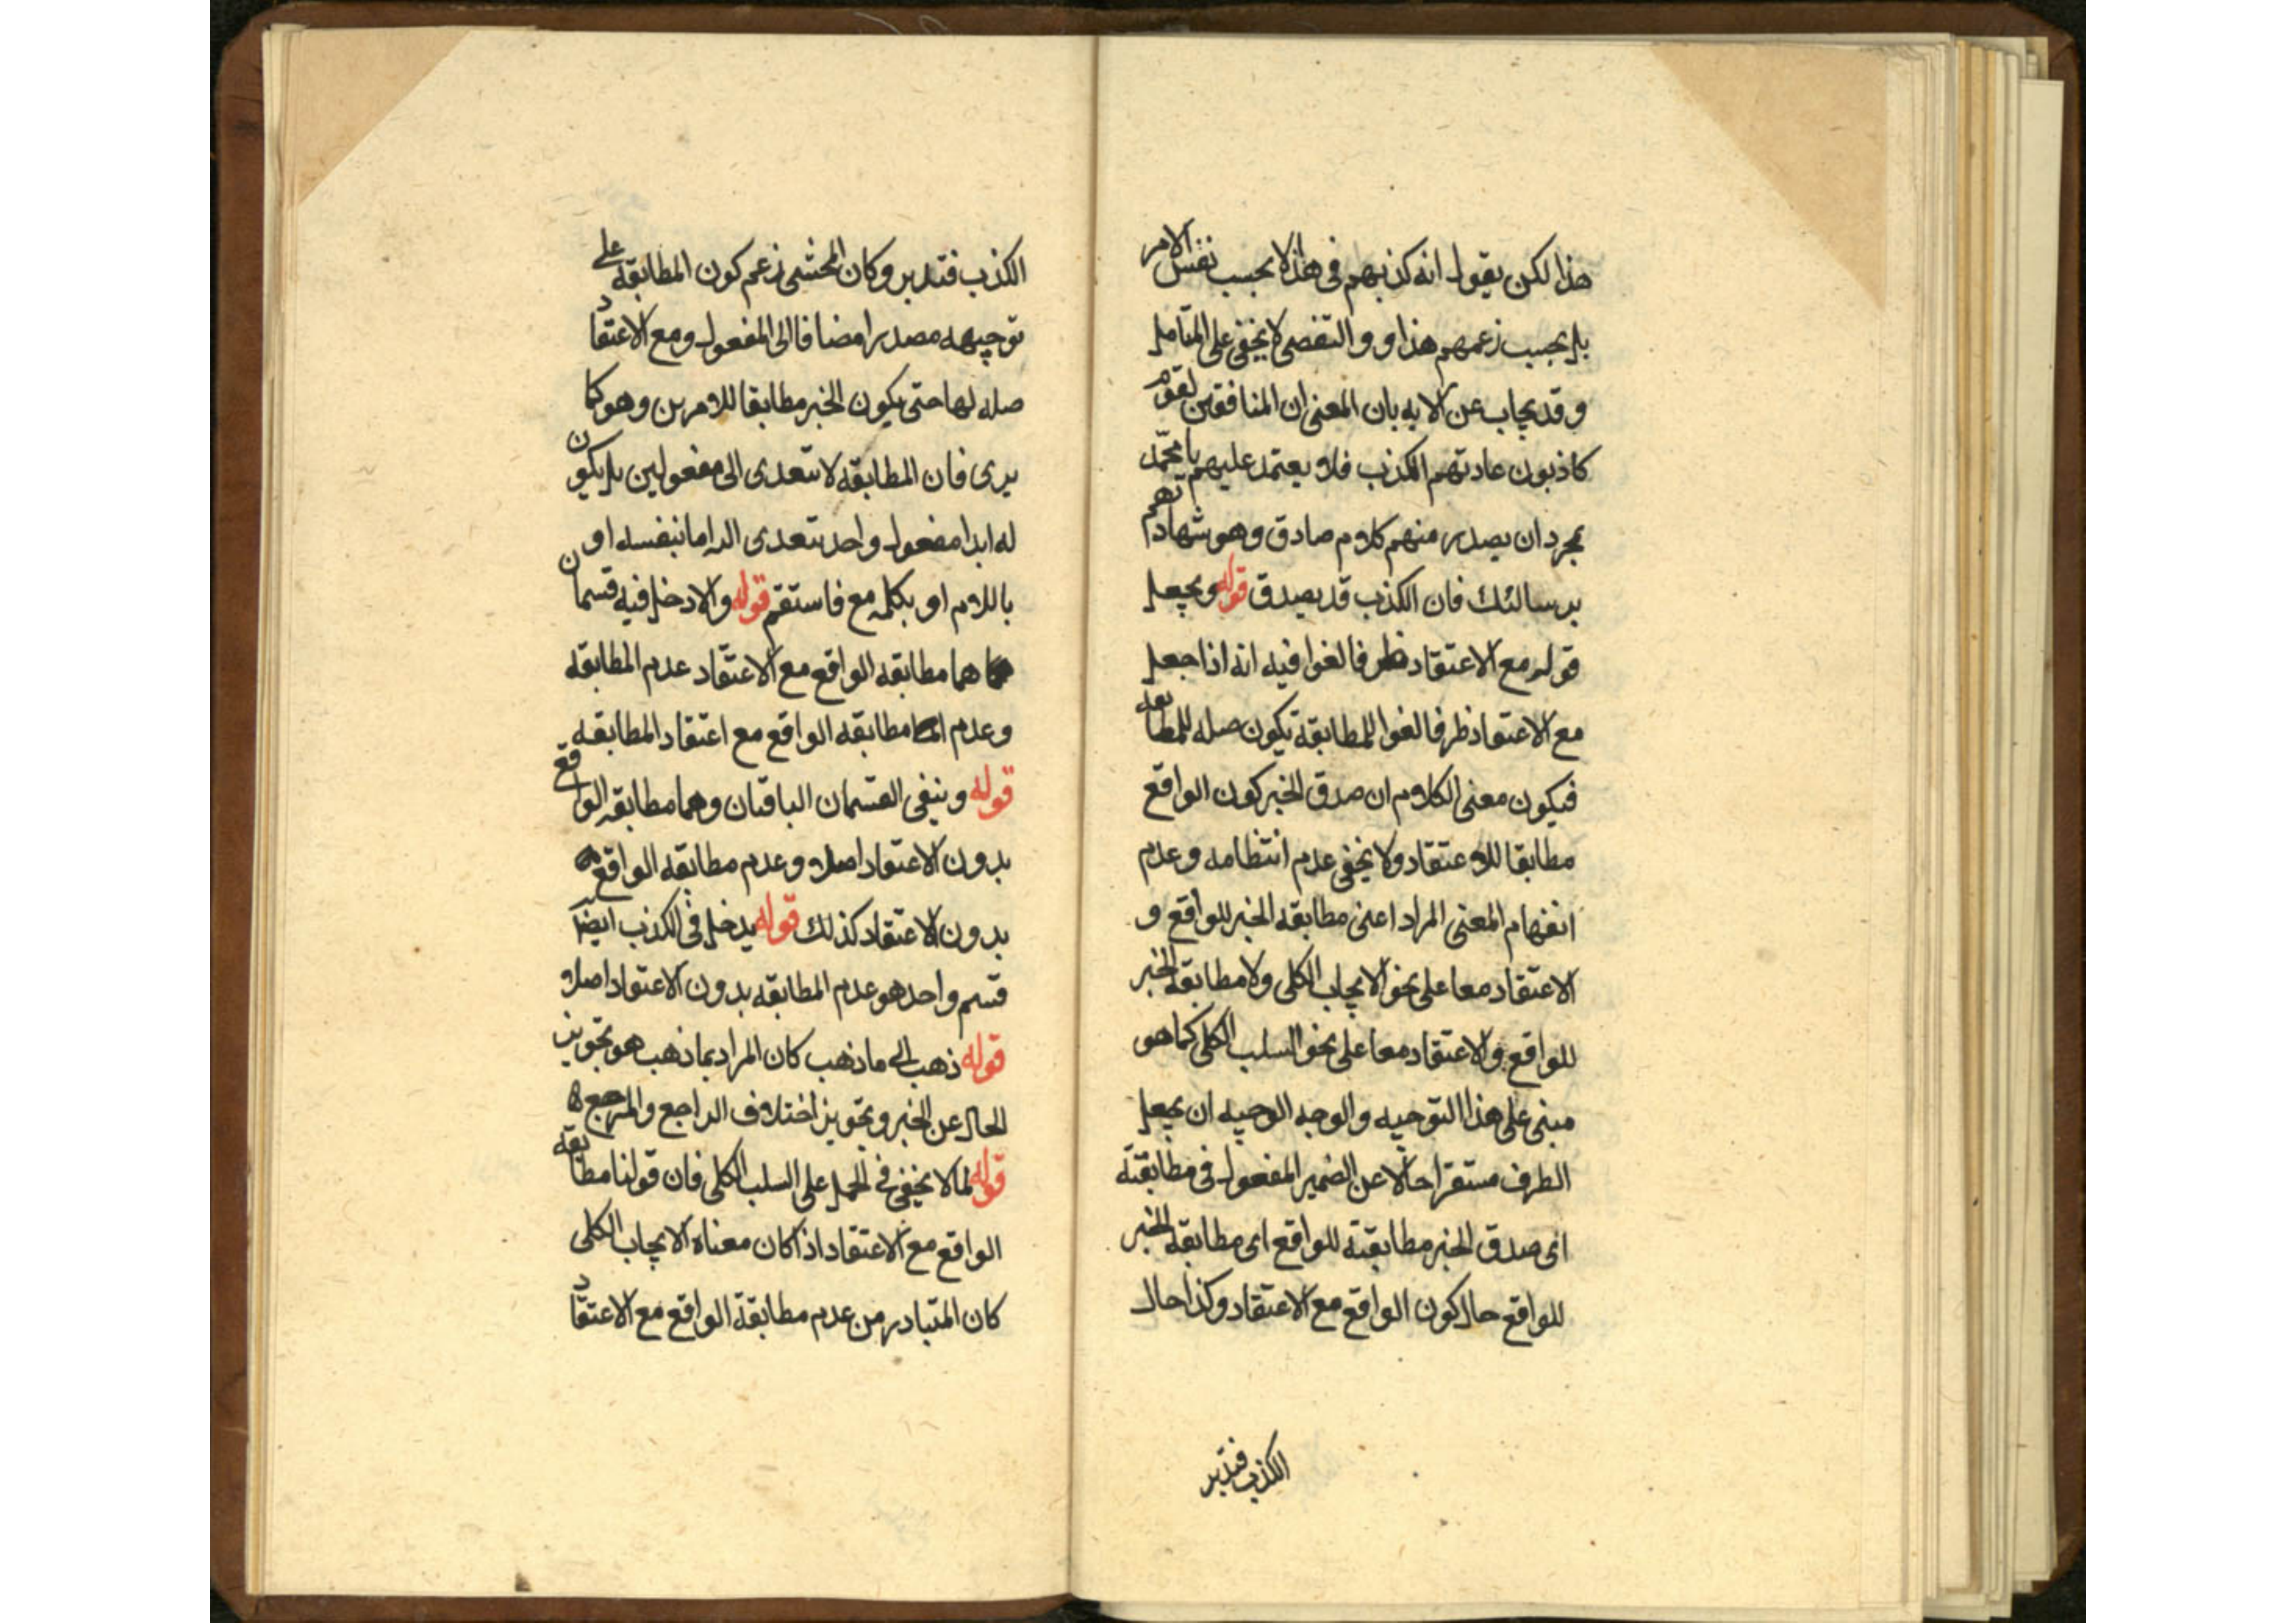 هذا لكن يقول انه كذبهم في هذا لا بحسب نفس الامر
بل بحسب زعمهم هذا و والتفصى لا يخفى على المتامل
و قد يجاب عن الايه بان المعنى ان المنافقين لقوم
كاذبون عادتهم الكذب فلا يعتمد عليهم يا محمد
بمجرد ان يصدر منهم كلام صادق وهو شهادتهم
برسالتك فان الكذب قد يصدق قوله ويجعل
قوله مع الاعتقاد ظرفا لغوا فيه انه اذا جعل
مع الاعتقاد ظرفا لغوا للمطابقة يكون صله للمطابقه
فيكون معنى الكلام ان صدق الخبر كون الواقع
مطابقا للاعتقاد ولا يخفى عدم انتظامه وعدم
انفهام المعنى المراد اعنى مطابقه الخبر للواقع و
الاعتقاد معا على نحو الايجاب الكلى ولا مطابقة الخبر
للواقع والاعتقاد معا على نحو السلب الكلى كما هو
مبنى على هذا التوجيه والوجه الوجيه ان يجعل
الظرف مستقرا حالا عن الضمير المفعول فى مطابقته
اى صدق الخبر مطابقته للواقع اى مطابقة الخبر
للواقع حال كون الواقع مع الاعتقاد وكذا حال
الكذب فتدبر
الكذب فتدبر وكان المحشى زعم كون المطابقة على
توجيهه مصدرا مضافا الى المفعول ومع الاعتقاد
صله لها حتى يكون الخبر مطابقا للامرين وهو كما
يرى فان المطابقه لا تتعدى الى مفعولين بل يكون
له ابدا مفعول واحد تتعدى اليه اما بنفسه او
باللام او بكلمه مع فاستقم قوله والا دخل فيه قسمان
هما مطابقه الواقع مع الاعتقاد عدم المطابقه
وعدم مطابقه الواقع مع اعتقاد المطابقه
قوله وينفى القسمان الباقيان وهما مطابقه الواقع
بدون الاعتقاد اصلا وعدم مطابقه الواقع
بدون الاعتقاد كذلك قوله يدخل فى الكذب ايضا
قسم واحد هو عدم المطابقه بدون الاعتقاد اصلا
قوله ذهب الى ما ذهب كان المراد بما ذهب هو تجويز
الحال عن الخبر وتجويز اختلاف الراجع والمرجع
قوله لما لا يخفى فى الحمل على السلب الكلى فان قولنا مطابقه
الواقع مع الاعتقاد اذا كان معناه الايجاب الكلى
كان المتبادر من عدم مطابقة الواقع مع الاعتقاد